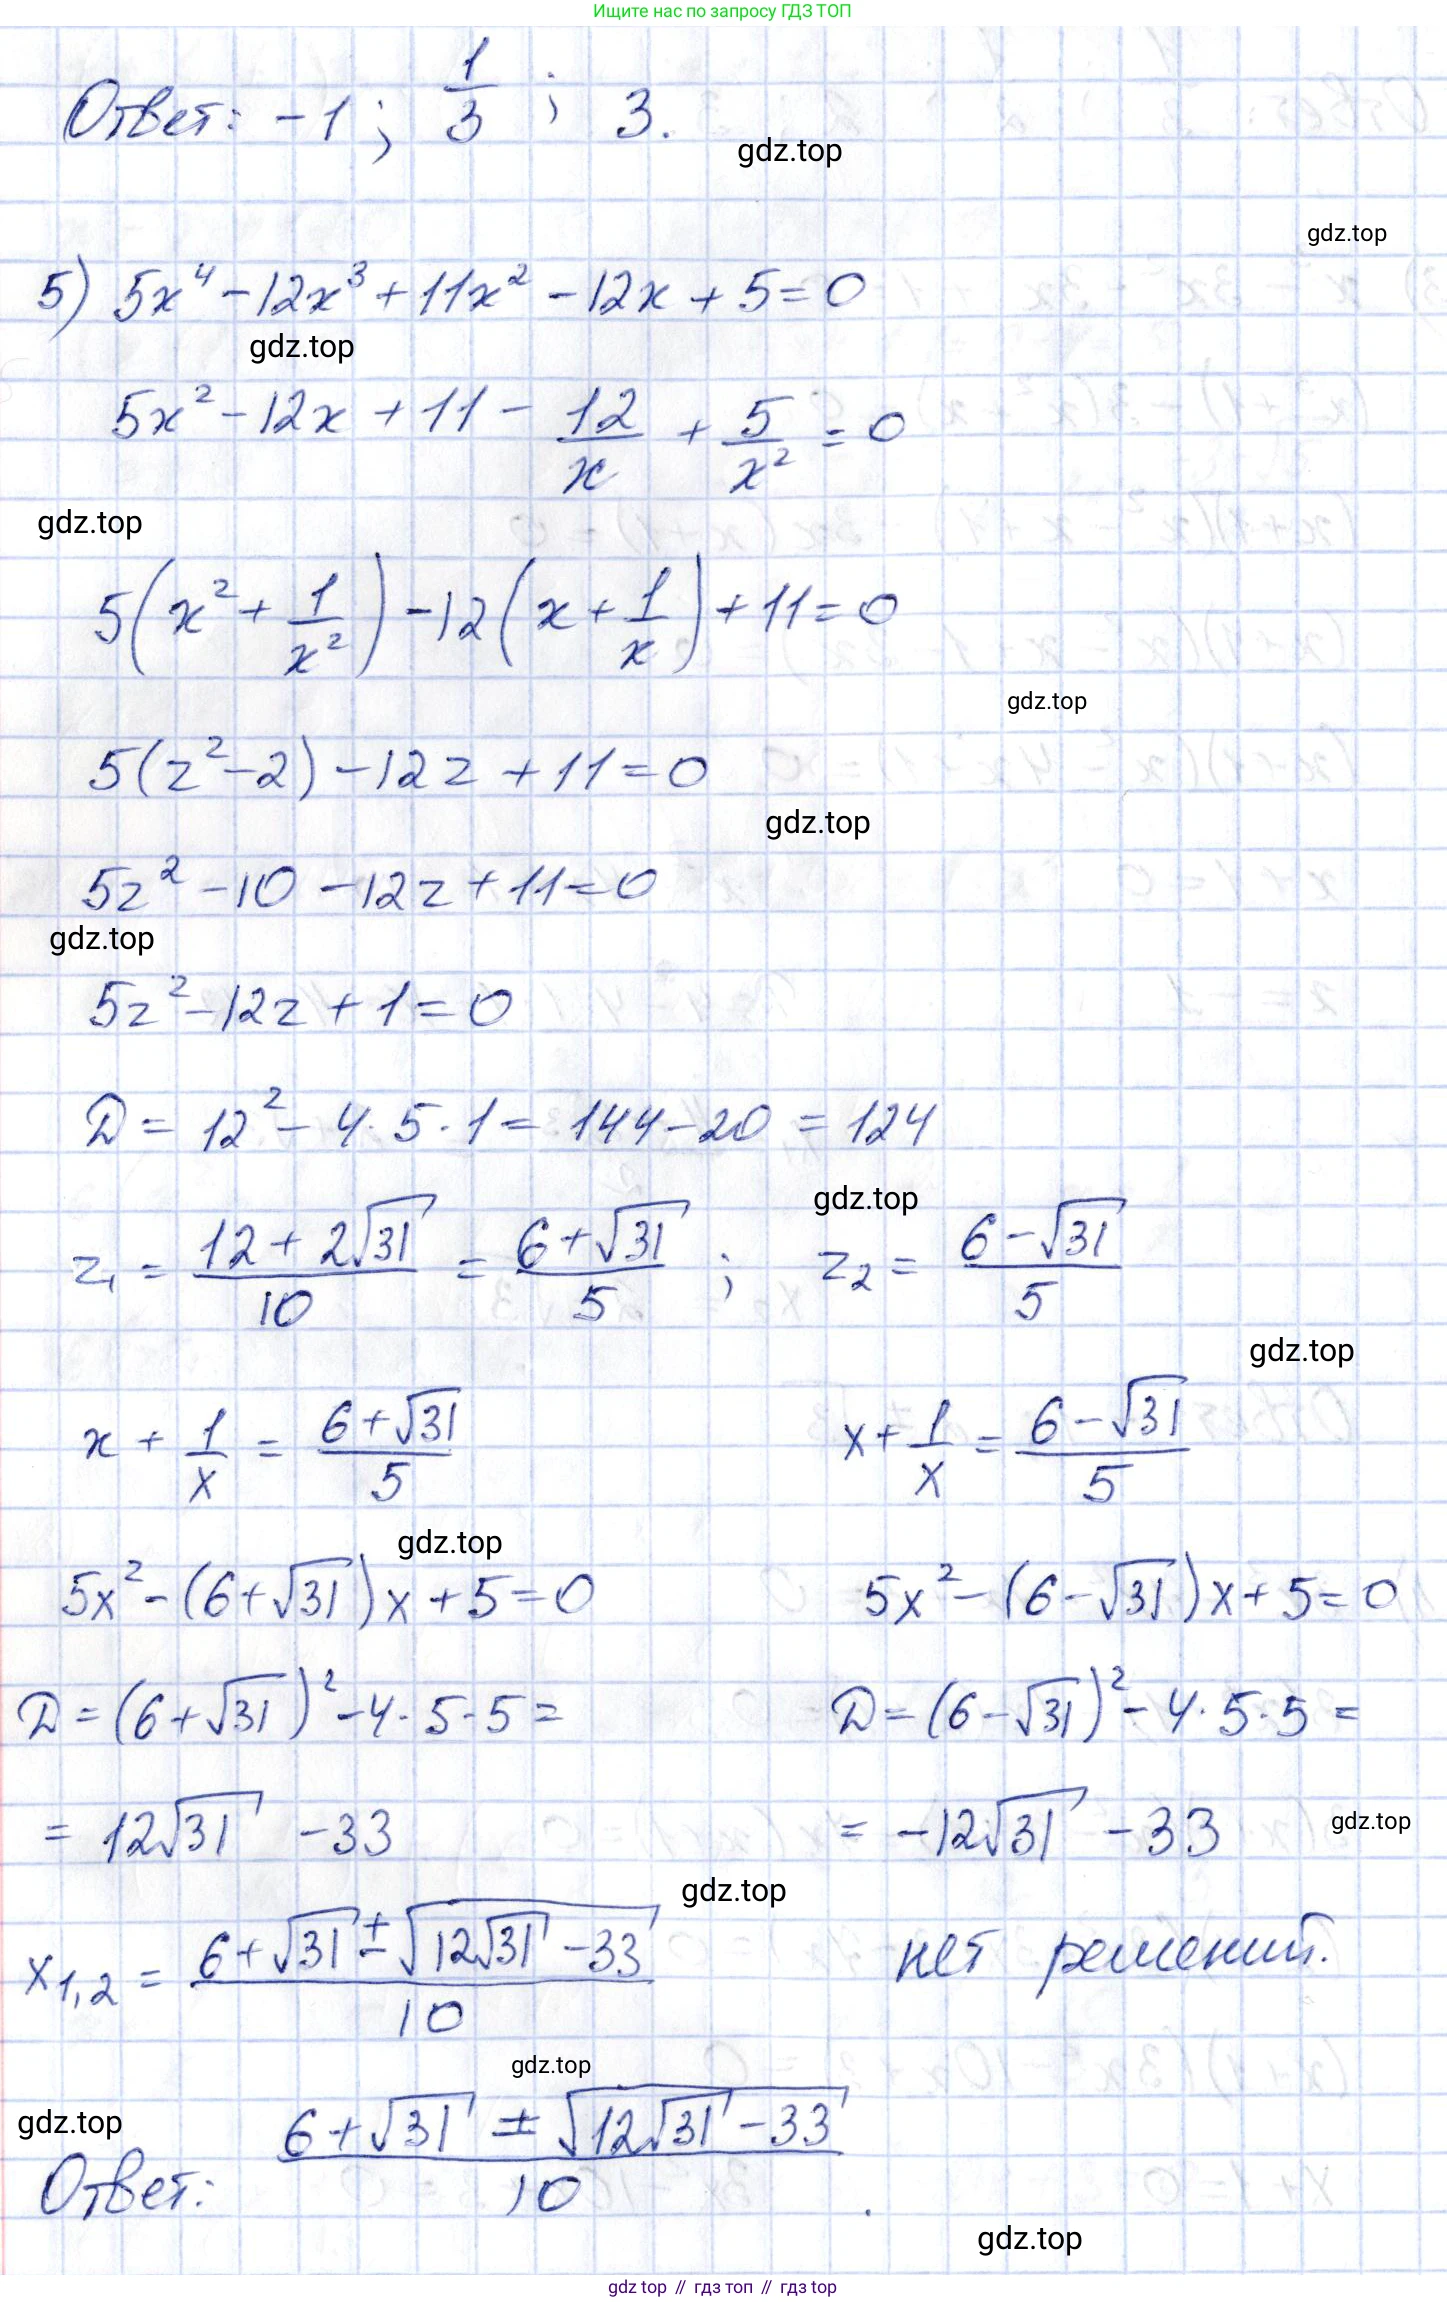 Ищите нас по запросу ГДЗ ТОП
Ответ: -1; 1/3; 3.
gdz.top
gdz.top
5) 5x⁴ - 12x³ + 11x² - 12x + 5 = 0
gdz.top
5x² - 12x + 11 - 12/x + 5/x² = 0
gdz.top
5(x² + 1/x²) - 12(x + 1/x) + 11 = 0
gdz.top
5(z² - 2) - 12z + 11 = 0
gdz.top
5z² - 10 - 12z + 11 = 0
gdz.top
5z² - 12z + 1 = 0
D = 12² - 4 · 5 · 1 = 144 - 20 = 124
gdz.top
z₁ = (12 + 2√31)/10 = (6 + √31)/5 ; z₂ = (6 - √31)/5
gdz.top
x + 1/x = (6 + √31)/5 x + 1/x = (6 - √31)/5
gdz.top
5x² - (6 + √31)x + 5 = 0 5x² - (6 - √31)x + 5 = 0
D = (6 + √31)² - 4 · 5 · 5 = D = (6 - √31)² - 4 · 5 · 5 =
= 12√31 - 33 = -12√31 - 33
gdz.top
gdz.top
x₁,₂ = (6 + √31 ± √(12√31 - 33))/10 нет решений.
gdz.top
gdz.top
Ответ: (6 + √31 ± √(12√31 - 33))/10 .
gdz.top
gdz top // гдз топ // гдз top